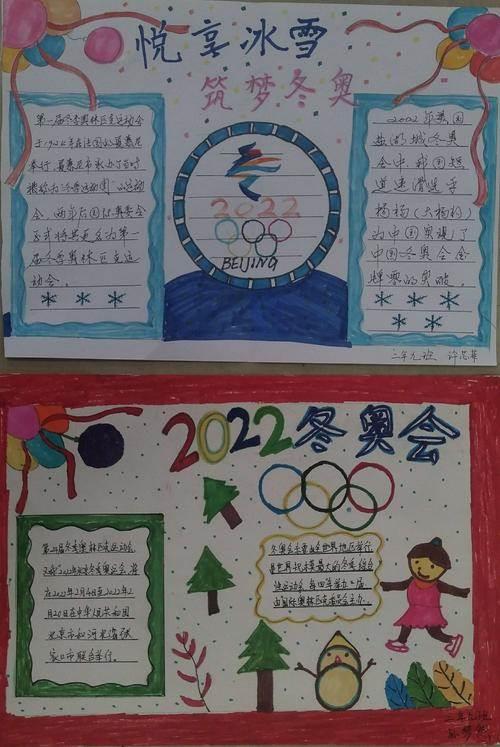 悦享冰雪
筑梦冬奥
第一届冬季奥林匹克运动会
于1924年在法国的夏慕尼
举行,夏慕尼市承办了当时
被称为“冬季运动周”的运动
会,两年后国际奥委会
正式将其更名为第一
届冬季奥林匹克运
动会。
2022
BEIJING
2002年美国
盐湖城冬奥
会中,我国短
道速滑选手
杨杨(大杨杨)
为中国实现了
中国冬奥会金
牌零的突破。
三年九班 许
2022冬奥会
第24届冬季奥林匹克运动会,
又称2022北京冬季奥运会,将
在2022年2月4日至2022年2
月20日在中华人民共和国
北京市和河北省张
家口市联合举行。
冬奥会主要由全世界地区举行,
是世界规模最大的冬季综合
性运动会,每四年举办一届,
由国际奥林匹克委员会主办。
三年九班
孙梦